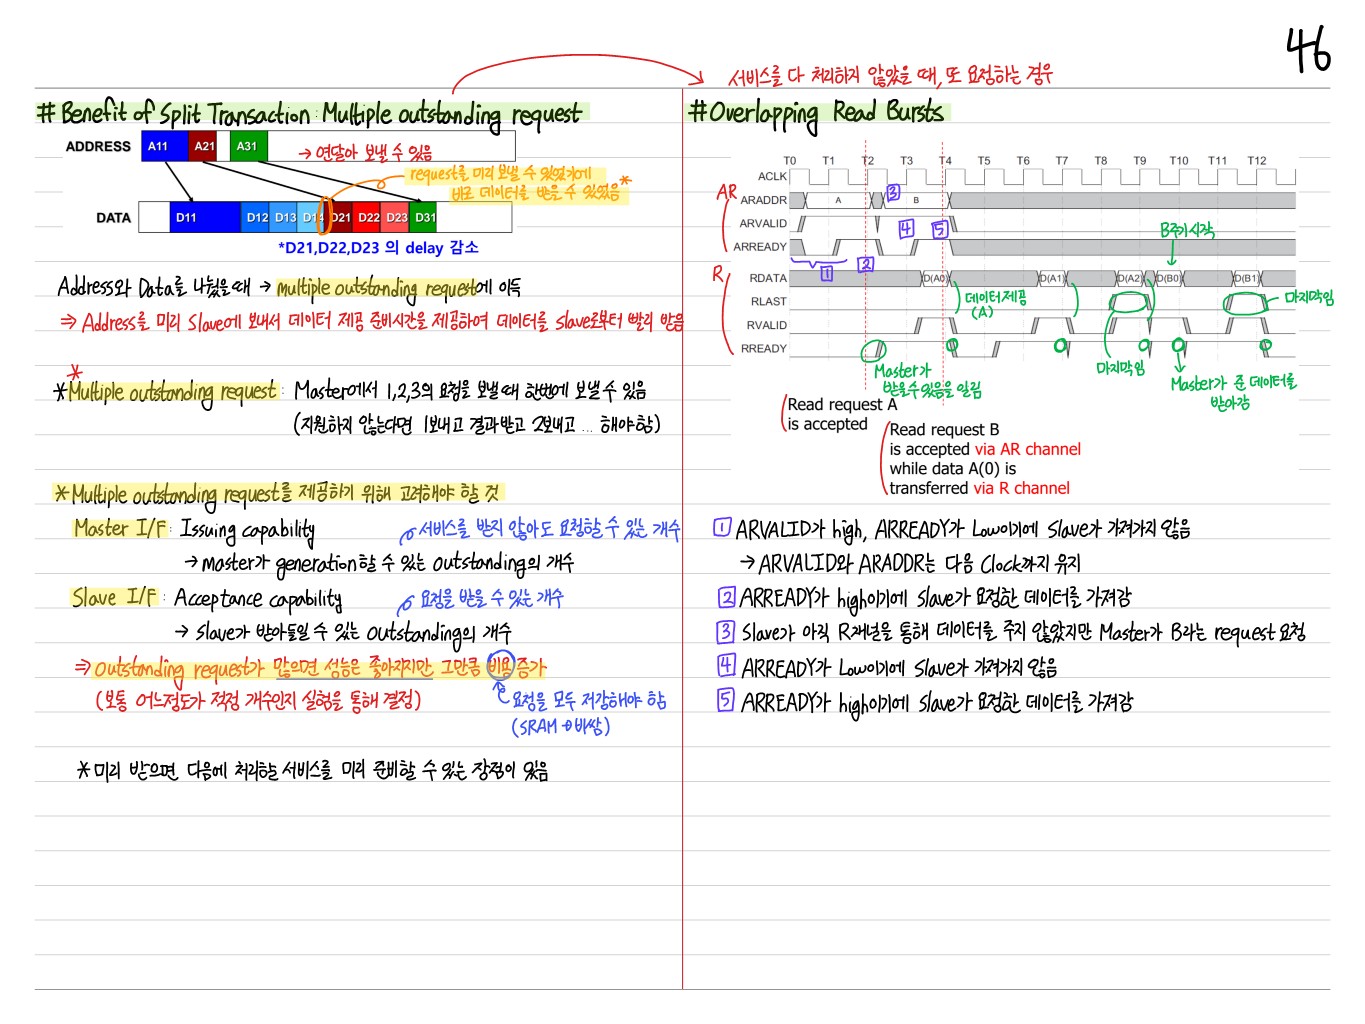 46
서비스를 다 처리하지 않았을 때, 또 요청하는 경우
# Benefit of Split Transaction : Multiple outstanding request
ADDRESS A11 A21 A31
→ 연달아 보낼 수 있음
request를 미리 보낼 수 있었기에
바로 데이터를 받을 수 있었음*
DATA D11 D12 D13 D14 D21 D22 D23 D31
*D21,D22,D23 의 delay 감소
Address와 Data를 나눴을 때 → multiple outstanding request에 이득
⇒ Address를 미리 Slave에 보내서 데이터 제공 준비시간을 제공하여 데이터를 Slave로부터 빨리 받음
*
* Multiple outstanding request : Master에서 1,2,3의 요청을 보낼 때 한번에 보낼 수 있음
(지원하지 않는다면 1보내고 결과받고 2보내고 ... 해야함)
* Multiple outstanding request를 제공하기 위해 고려해야 할 것
Master I/F : Issuing capability
서비스를 받지 않아도 요청할 수 있는 개수
→ master가 generation할 수 있는 outstanding의 개수
Slave I/F : Acceptance capability
요청을 받을 수 있는 개수
→ slave가 받아들일 수 있는 outstanding의 개수
⇒ Outstanding request가 많으면 성능은 좋아지지만 그만큼 비용 증가
(보통 어느정도가 적정 개수인지 실험을 통해 결정)
요청을 모두 저장해야 함
(SRAM → 비쌈)
* 미리 받으면 다음에 처리하는 서비스를 미리 준비할 수 있는 장점이 있음
# Overlapping Read Bursts
T0 T1 T2 T3 T4 T5 T6 T7 T8 T9 T10 T11 T12
ACLK
AR
ARADDR A 3 B
ARVALID 4 5
ARREADY
1 2
B주기 시작
R
RDATA D(A0) D(A1) D(A2) D(B0) D(B1)
RLAST
데이터 제공
(A)
마지막임
RVALID
RREADY
Master가
받을 수 있음을 알림
마지막임
Master가 준 데이터를
받아감
Read request A
is accepted
Read request B
is accepted via AR channel
while data A(0) is
transferred via R channel
1 ARVALID가 high, ARREADY가 Low이기에 Slave가 가져가지 않음
→ ARVALID와 ARADDR는 다음 Clock까지 유지
2 ARREADY가 high이기에 Slave가 요청한 데이터를 가져감
3 Slave가 아직 R채널을 통해 데이터를 주지 않았지만 Master가 B라는 request 요청
4 ARREADY가 Low이기에 Slave가 가져가지 않음
5 ARREADY가 high이기에 Slave가 요청한 데이터를 가져감